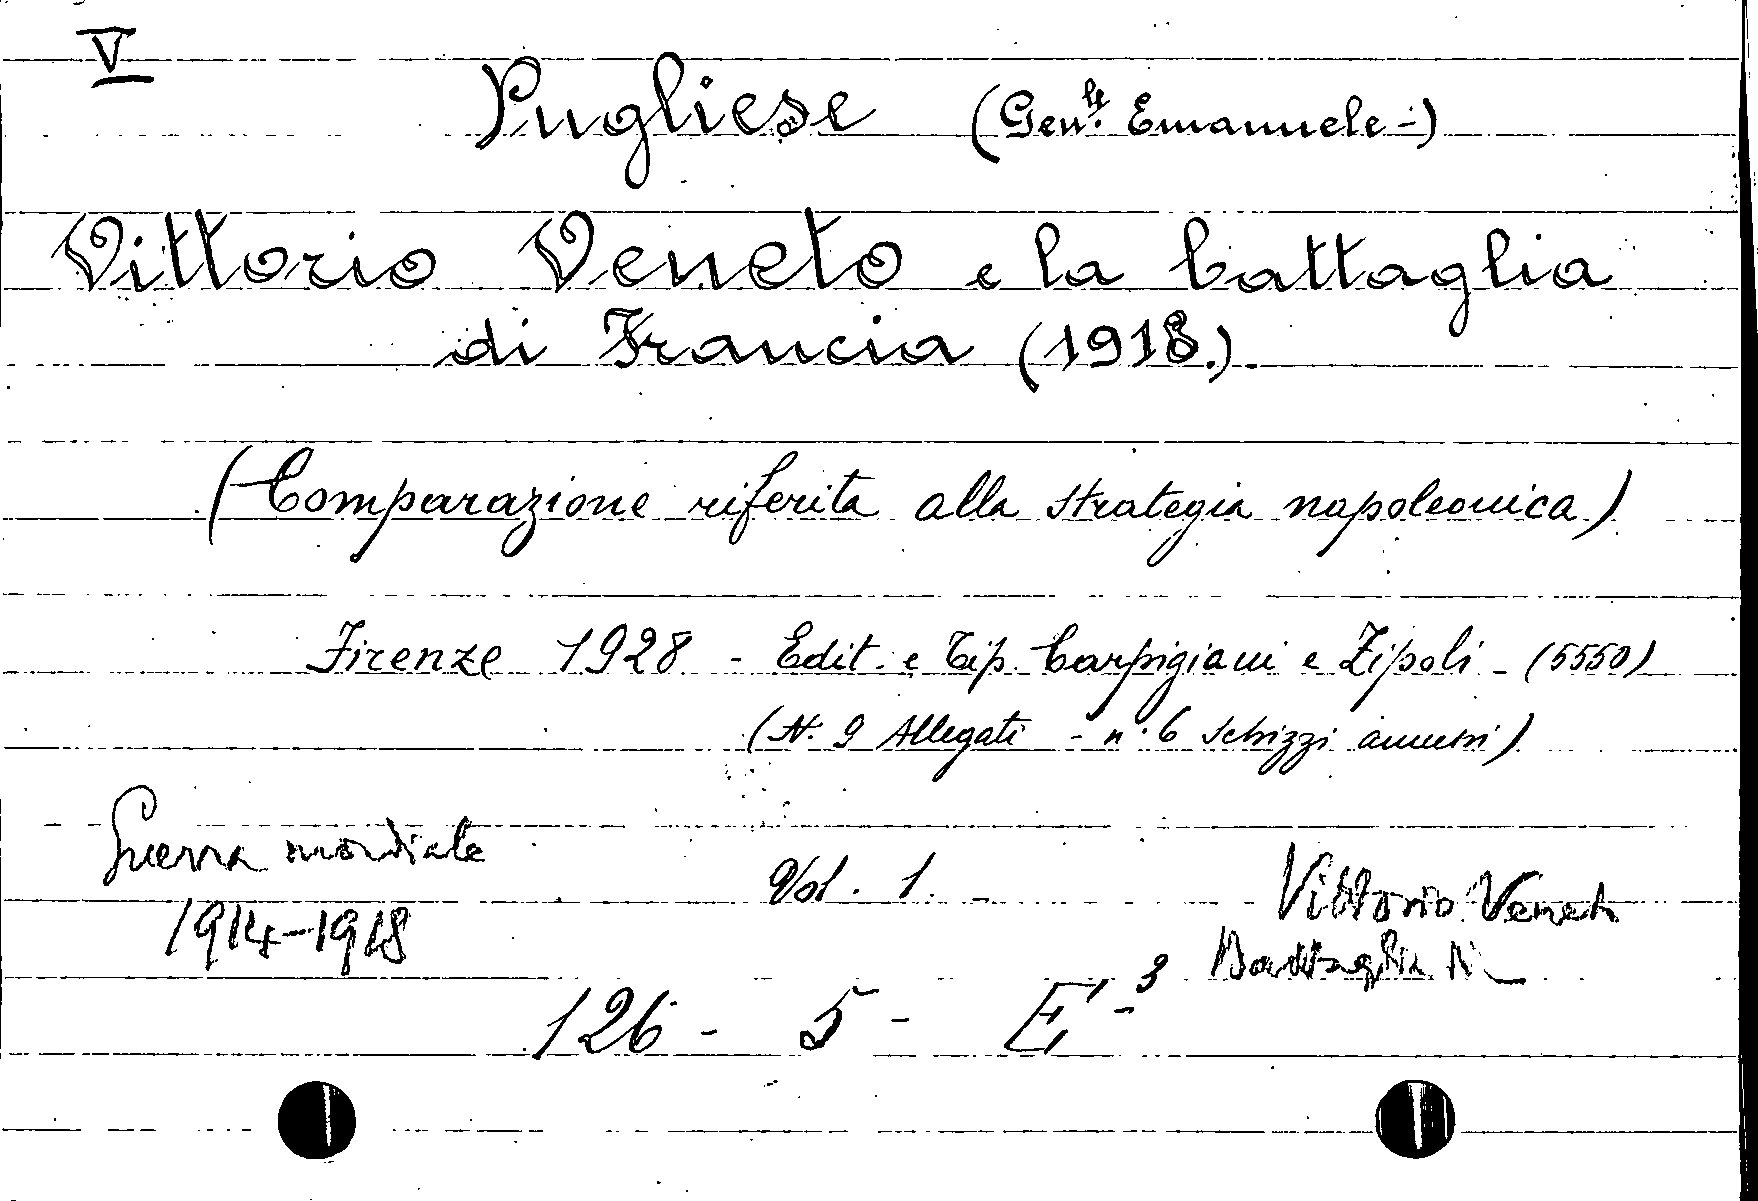 V
Pugliese (Gen.le Emanuele-)
Vittorio Veneto e la battaglia
di Francia (1918.).
(Comparazione riferita alla strategia napoleonica)
Firenze 1928 - Edit. e Tip. Carpigiani e Zipoli - (5550)
(N. 9 Allegati - n. 6 schizzi annessi)
Guerra mondiale
1914-1918
Vol. 1. -
Vittorio Veneto
Battaglia di
126 - 5 - E - 3